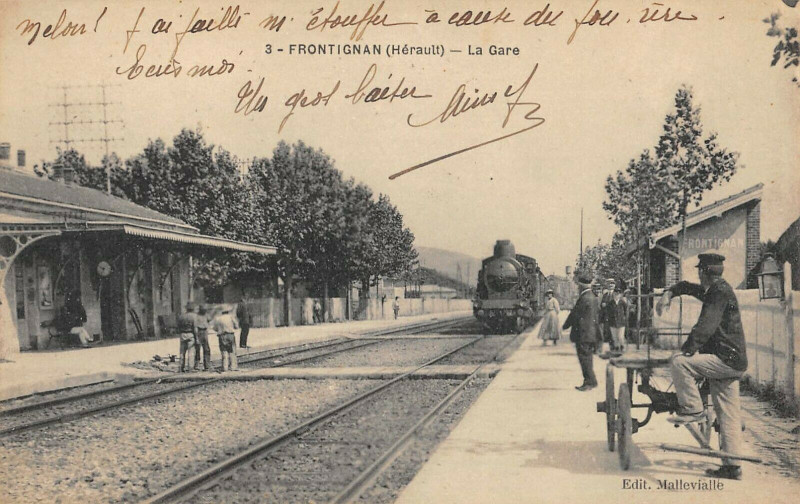 melon! j'ai failli m'étouffer à cause du fou rire
3 - FRONTIGNAN (Hérault) — La Gare
Ecris moi.
Un gros baiser
FRONTIGNAN
Edit. Mallevialle